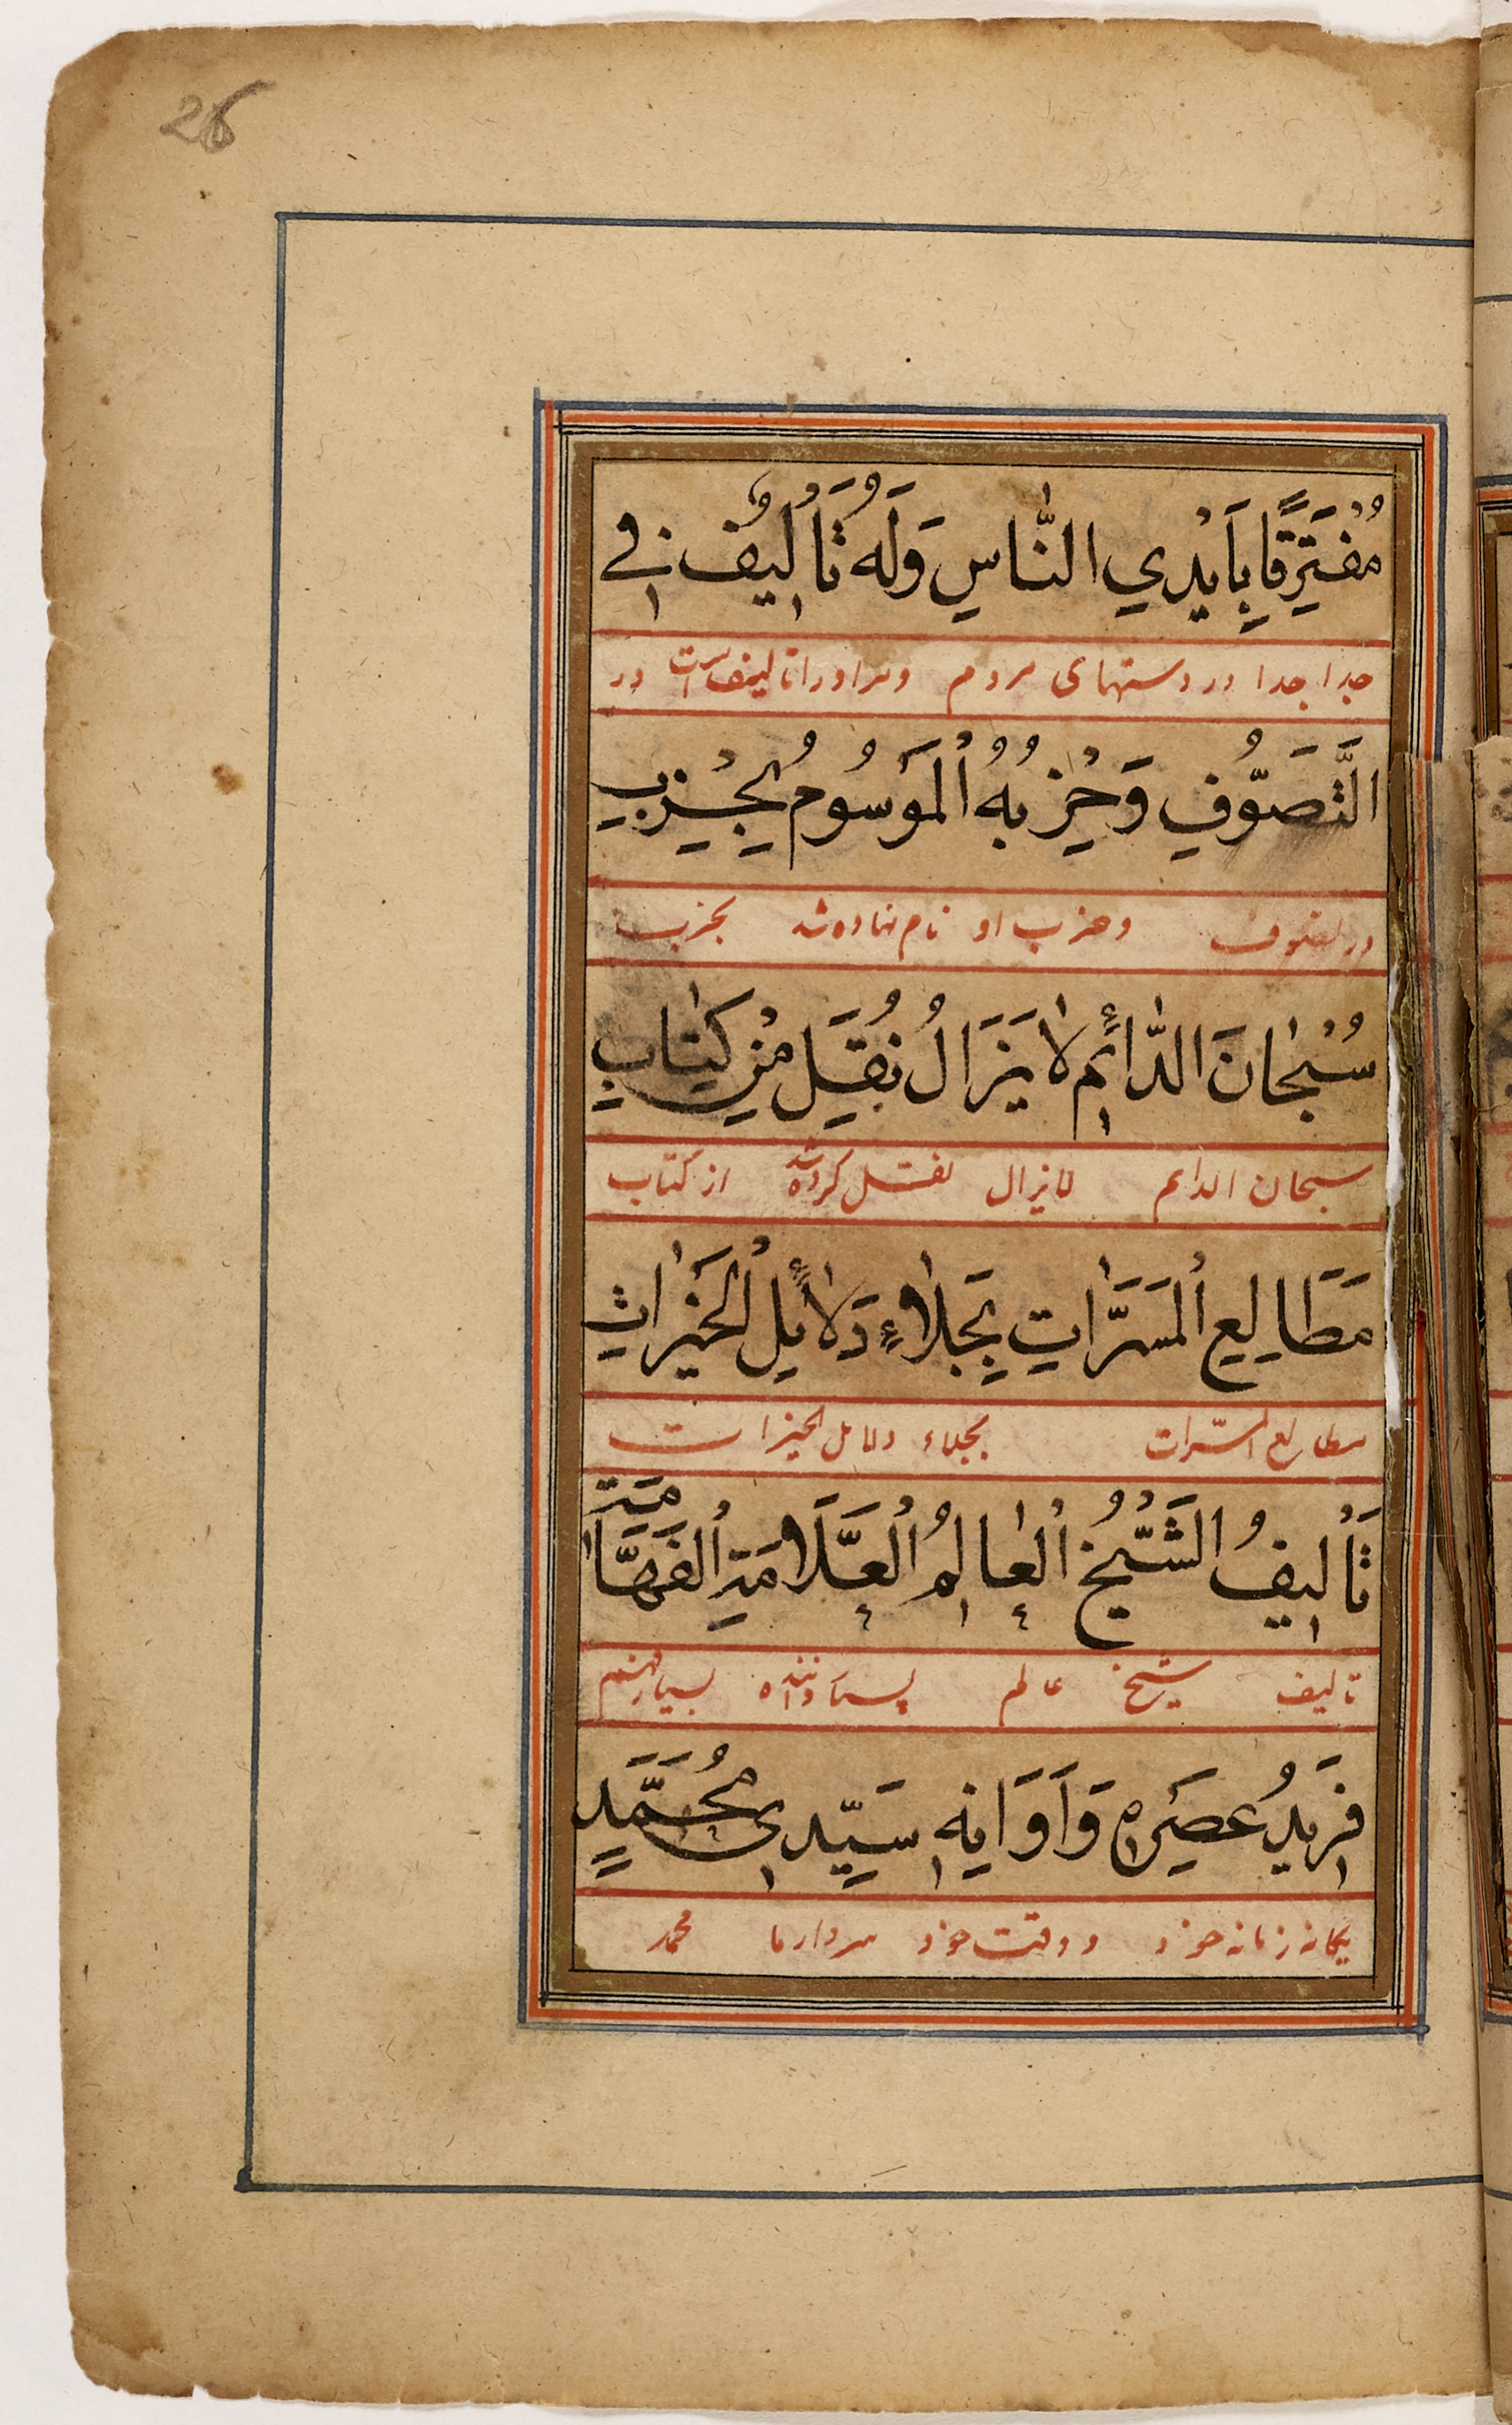 26
مُفْتَرِقًا بِاَيْدِي النَّاسِ وَلَهُ تَأْلِيْفٌ فِي
جدا جدا در دستهای مردم و مر اورا تالیف است در
التَّصَوُّفِ وَحِزْبُهُ الْمَوْسُومُ بِحِزْبِ
در تصوف و حزب او نام نهاده شد بحزب
سُبْحَانَ الدَّائِمِ لَا يَزَالُ نُقِلَ مِنْ كِتَابِ
سبحان الدایم لایزال نقل کرده شد از کتاب
مَطَالِعِ الْمَسَرَّاتِ بِجَلَاءِ دَلَائِلِ الْخَيْرَاتِ
مطالع المسرات بجلاء دلائل الخیرات
تَأْلِيفُ الشَّيْخِ الْعَالِمِ الْعَلَّامَةِ الْفَهَّامَةِ
تالیف شیخ عالم بسیار داننده بسیار فهم
فَرِيدُ عَصْرِهِ وَاَوَانِهِ سَيِّدِي مُحَمَّدٍ
یگانه زمانه خود و وقت خود سردار ما محمد